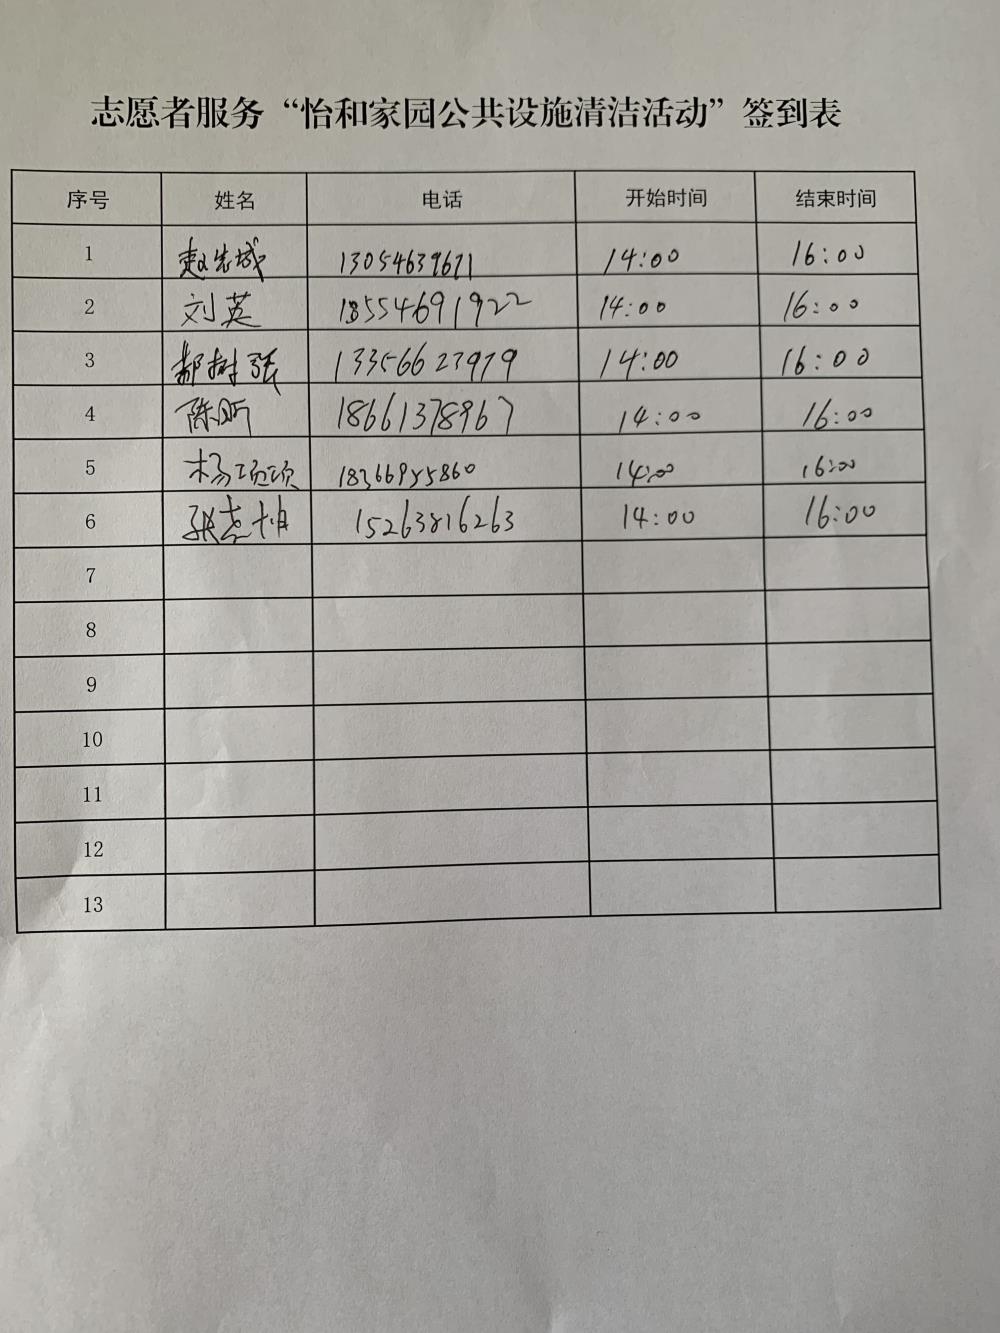 志愿者服务“怡和家园公共设施清洁活动”签到表
序号 姓名 电话 开始时间 结束时间
1 赵先城 13054639671 14:00 16:00
2 刘英 18554691922 14:00 16:00
3 郝树张 13356623979 14:00 16:00
4 陈昕 18661378967 14:00 16:00
5 杨项项 18366955860 14:00 16:00
6 15263816263 14:00 16:00
7
8
9
10
11
12
13